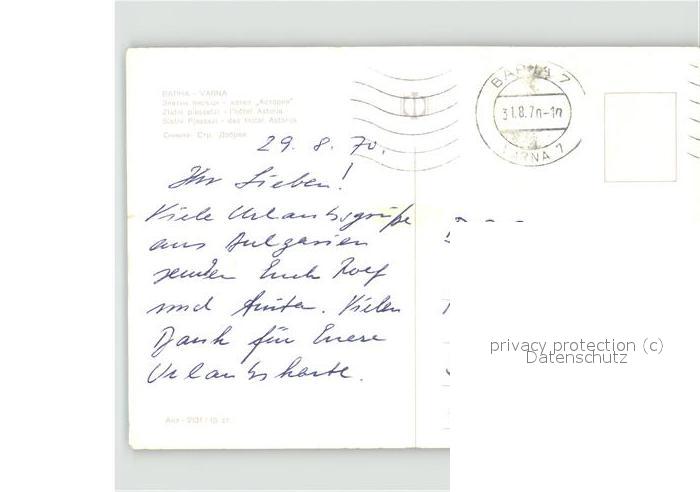 ВАРНА - VARNA
Златни пясъци - хотел „Астория"
Zlatni pjassatzi - l'hôtel Astoria
Slatni Pjassazi - das Hotel Astoria
Снимка: Стр. Добрев
29. 8. 70.
Ihr Lieben!
Viele Urlaubsgrüße
aus Bulgarien
senden Euch Rolf
und Anita. Vielen
Dank für Euere
Urlaubskarte.
ВАРНА 7
31.8.70-10
VARNA 7
privacy protection (c)
Datenschutz